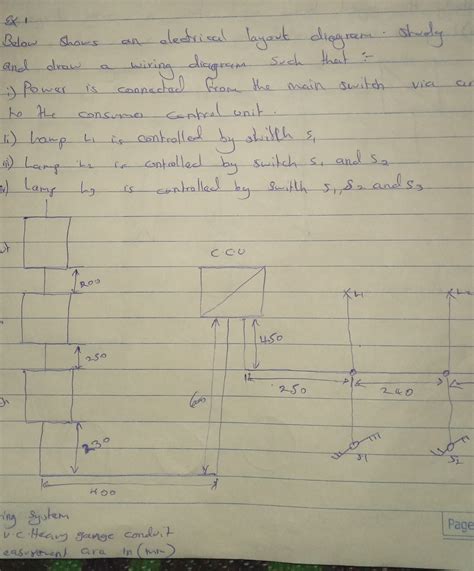 Ex 1
Below shows an electrical layout diagram. Study
and draw a wiring diagram such that :-
i) Power is connected from the main switch via
to the consumer control unit.
ii) Lamp L1 is controlled by switch S1
iii) Lamp L2 is controlled by switch S1 and S2
iv) Lamp L3 is controlled by switch S1, S2 and S3
C C U
200
L1
450
250
600
250
240
230
S1
S2
400
system
v.c. Heavy gauge conduit
easurement are in (mm)
Page